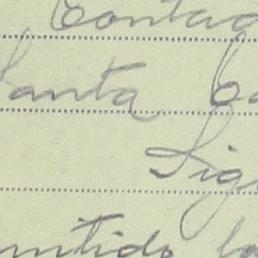 Contad
Santa Ca
Sig
mtido